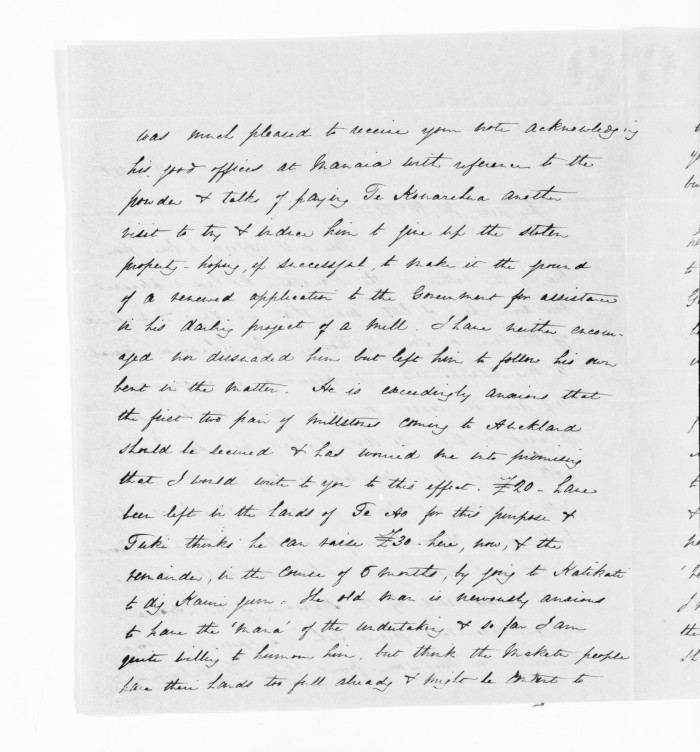 was much pleased to receive your note acknowledging
his good offices at Manaia with reference to the
powder & talks of paying Te another
visit to try & induce him to give up the stolen
property - hoping, if successful, to make it the ground
of a renewed application to the Government for assistance
in his darling project of a mill. I have neither encour-
aged nor dissuaded him but left him to follow his own
bent in the matter. He is exceedingly anxious that
the first two pair of millstones coming to Auckland
should be secured & has worried me into promising
that I would write to you to this effect. £20 - have
been left in the hands of Te Ao for this purpose &
Tuki thinks he can raise £30 - here, now, & the
remainder, in the course of 6 months, by going to Katikati
to dig Kauri gum - The old man is nervously anxious
to have the 'mana' of the undertaking & so far I am
quite willing to humour him, but think the Maketu people
have their hands too full already & might be content to